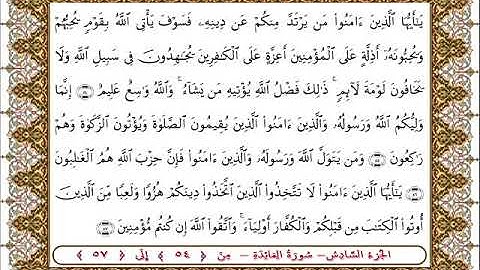 يَٰٓأَيُّهَا ٱلَّذِينَ ءَامَنُواْ مَن يَرْتَدَّ مِنكُمْ عَن دِينِهِۦ فَسَوْفَ يَأْتِى ٱللَّهُ بِقَوْمٍ يُحِبُّهُمْ
وَيُحِبُّونَهُۥٓ أَذِلَّةٍ عَلَى ٱلْمُؤْمِنِينَ أَعِزَّةٍ عَلَى ٱلْكَٰفِرِينَ يُجَٰهِدُونَ فِى سَبِيلِ ٱللَّهِ وَلَا
يَخَافُونَ لَوْمَةَ لَآئِمٍ ۚ ذَٰلِكَ فَضْلُ ٱللَّهِ يُؤْتِيهِ مَن يَشَآءُ ۚ وَٱللَّهُ وَٰسِعٌ عَلِيمٌ ﴿٥٤﴾ إِنَّمَا
وَلِيُّكُمُ ٱللَّهُ وَرَسُولُهُۥ وَٱلَّذِينَ ءَامَنُواْ ٱلَّذِينَ يُقِيمُونَ ٱلصَّلَوٰةَ وَيُؤْتُونَ ٱلزَّكَوٰةَ وَهُمْ
رَٰكِعُونَ ﴿٥٥﴾ وَمَن يَتَوَلَّ ٱللَّهَ وَرَسُولَهُۥ وَٱلَّذِينَ ءَامَنُواْ فَإِنَّ حِزْبَ ٱللَّهِ هُمُ ٱلْغَٰلِبُونَ
﴿٥٦﴾ يَٰٓأَيُّهَا ٱلَّذِينَ ءَامَنُواْ لَا تَتَّخِذُواْ ٱلَّذِينَ ٱتَّخَذُواْ دِينَكُمْ هُزُوًا وَلَعِبًا مِّنَ ٱلَّذِينَ
أُوتُواْ ٱلْكِتَٰبَ مِن قَبْلِكُمْ وَٱلْكُفَّارَ أَوْلِيَآءَ ۚ وَٱتَّقُواْ ٱللَّهَ إِن كُنتُم مُّؤْمِنِينَ ﴿٥٧﴾
الجزء السادس - سورة المائدة - من ﴿ ٥٤ ﴾ إلى ﴿ ٥٧ ﴾